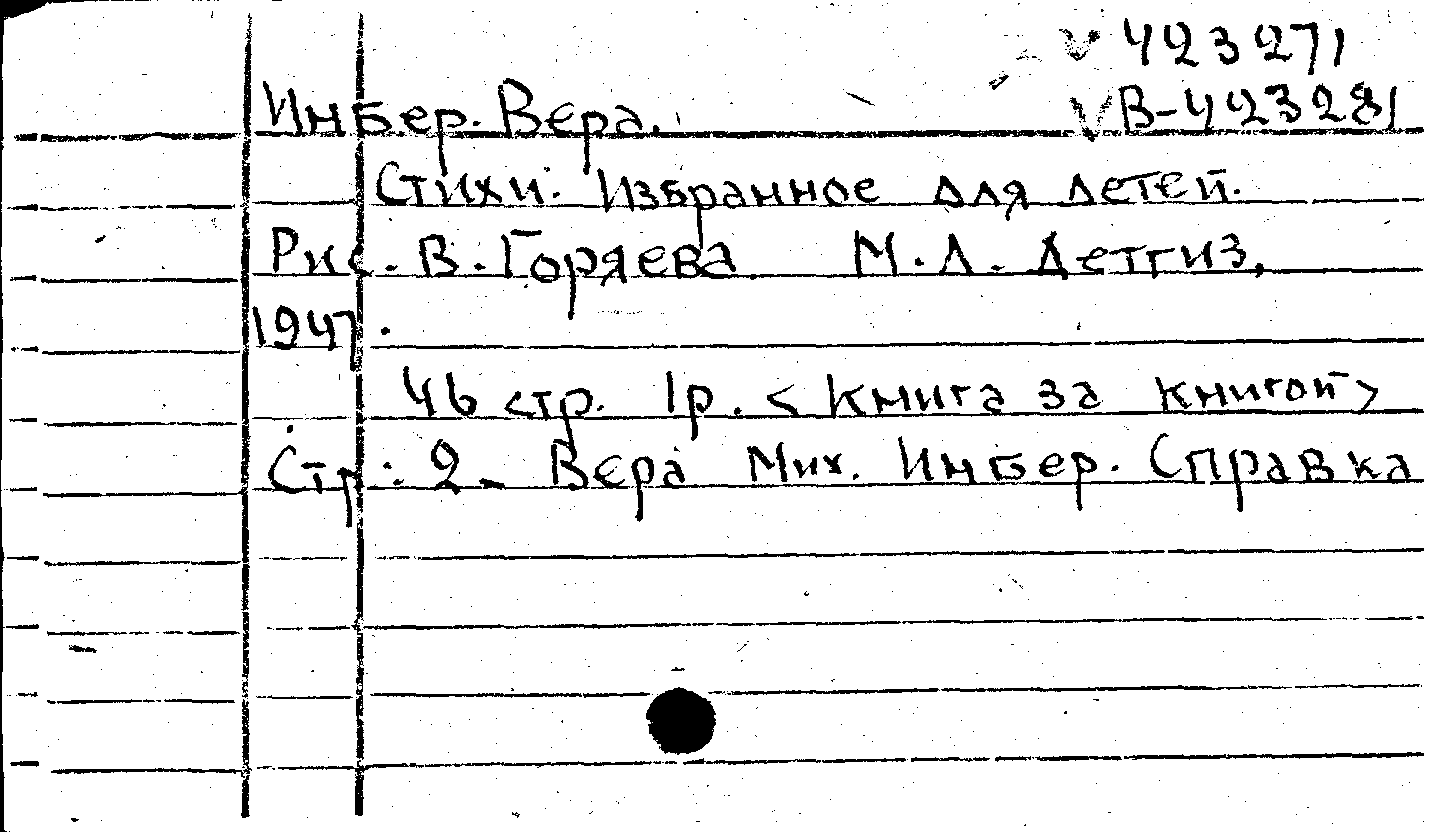 V 423271
Инбер. Вера. VВ-423281
Стихи. Избранное для детей.
Рис. В. Горяева. М.Л. Детгиз,
1947.
46 стр. 1р. <Книга за книгой>
Стр. 2 - Вера Мих. Инбер. Справка